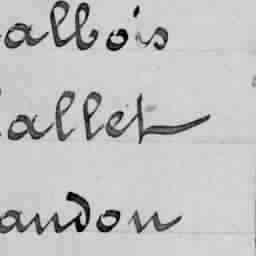 albois
allet
andon